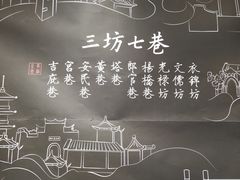 三坊七巷
衣錦坊
文儒坊
光禄坊
楊橋巷
郎官巷
塔巷
黃巷
安民巷
宮巷
吉庇巷